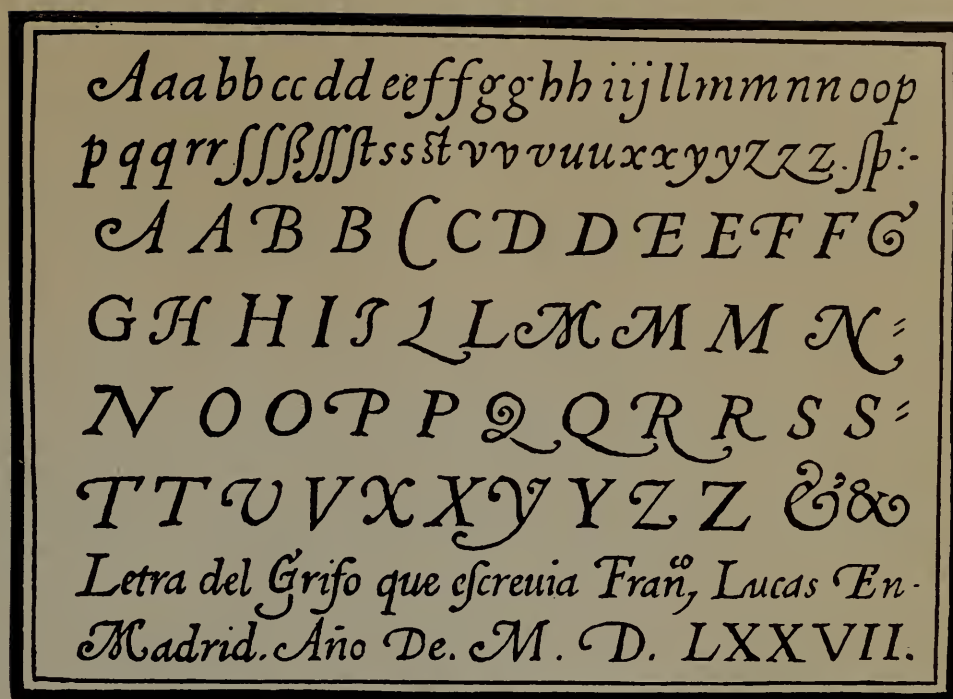 Aaabbccddeeffgghhiijllmmnnoop
pqqrrſſſßſſſtssstvvvuuxxyyzzz.ſp:-
A A B B C C D D E E F F G
G H H I I L L M M M N:
N O O P P Q Q R R S S:
T T V V X X Y Y Z Z & &
Letra del Grifo que eſcreuia Franᷠº, Lucas En-
Madrid. Año De. M. D. LXXVII.